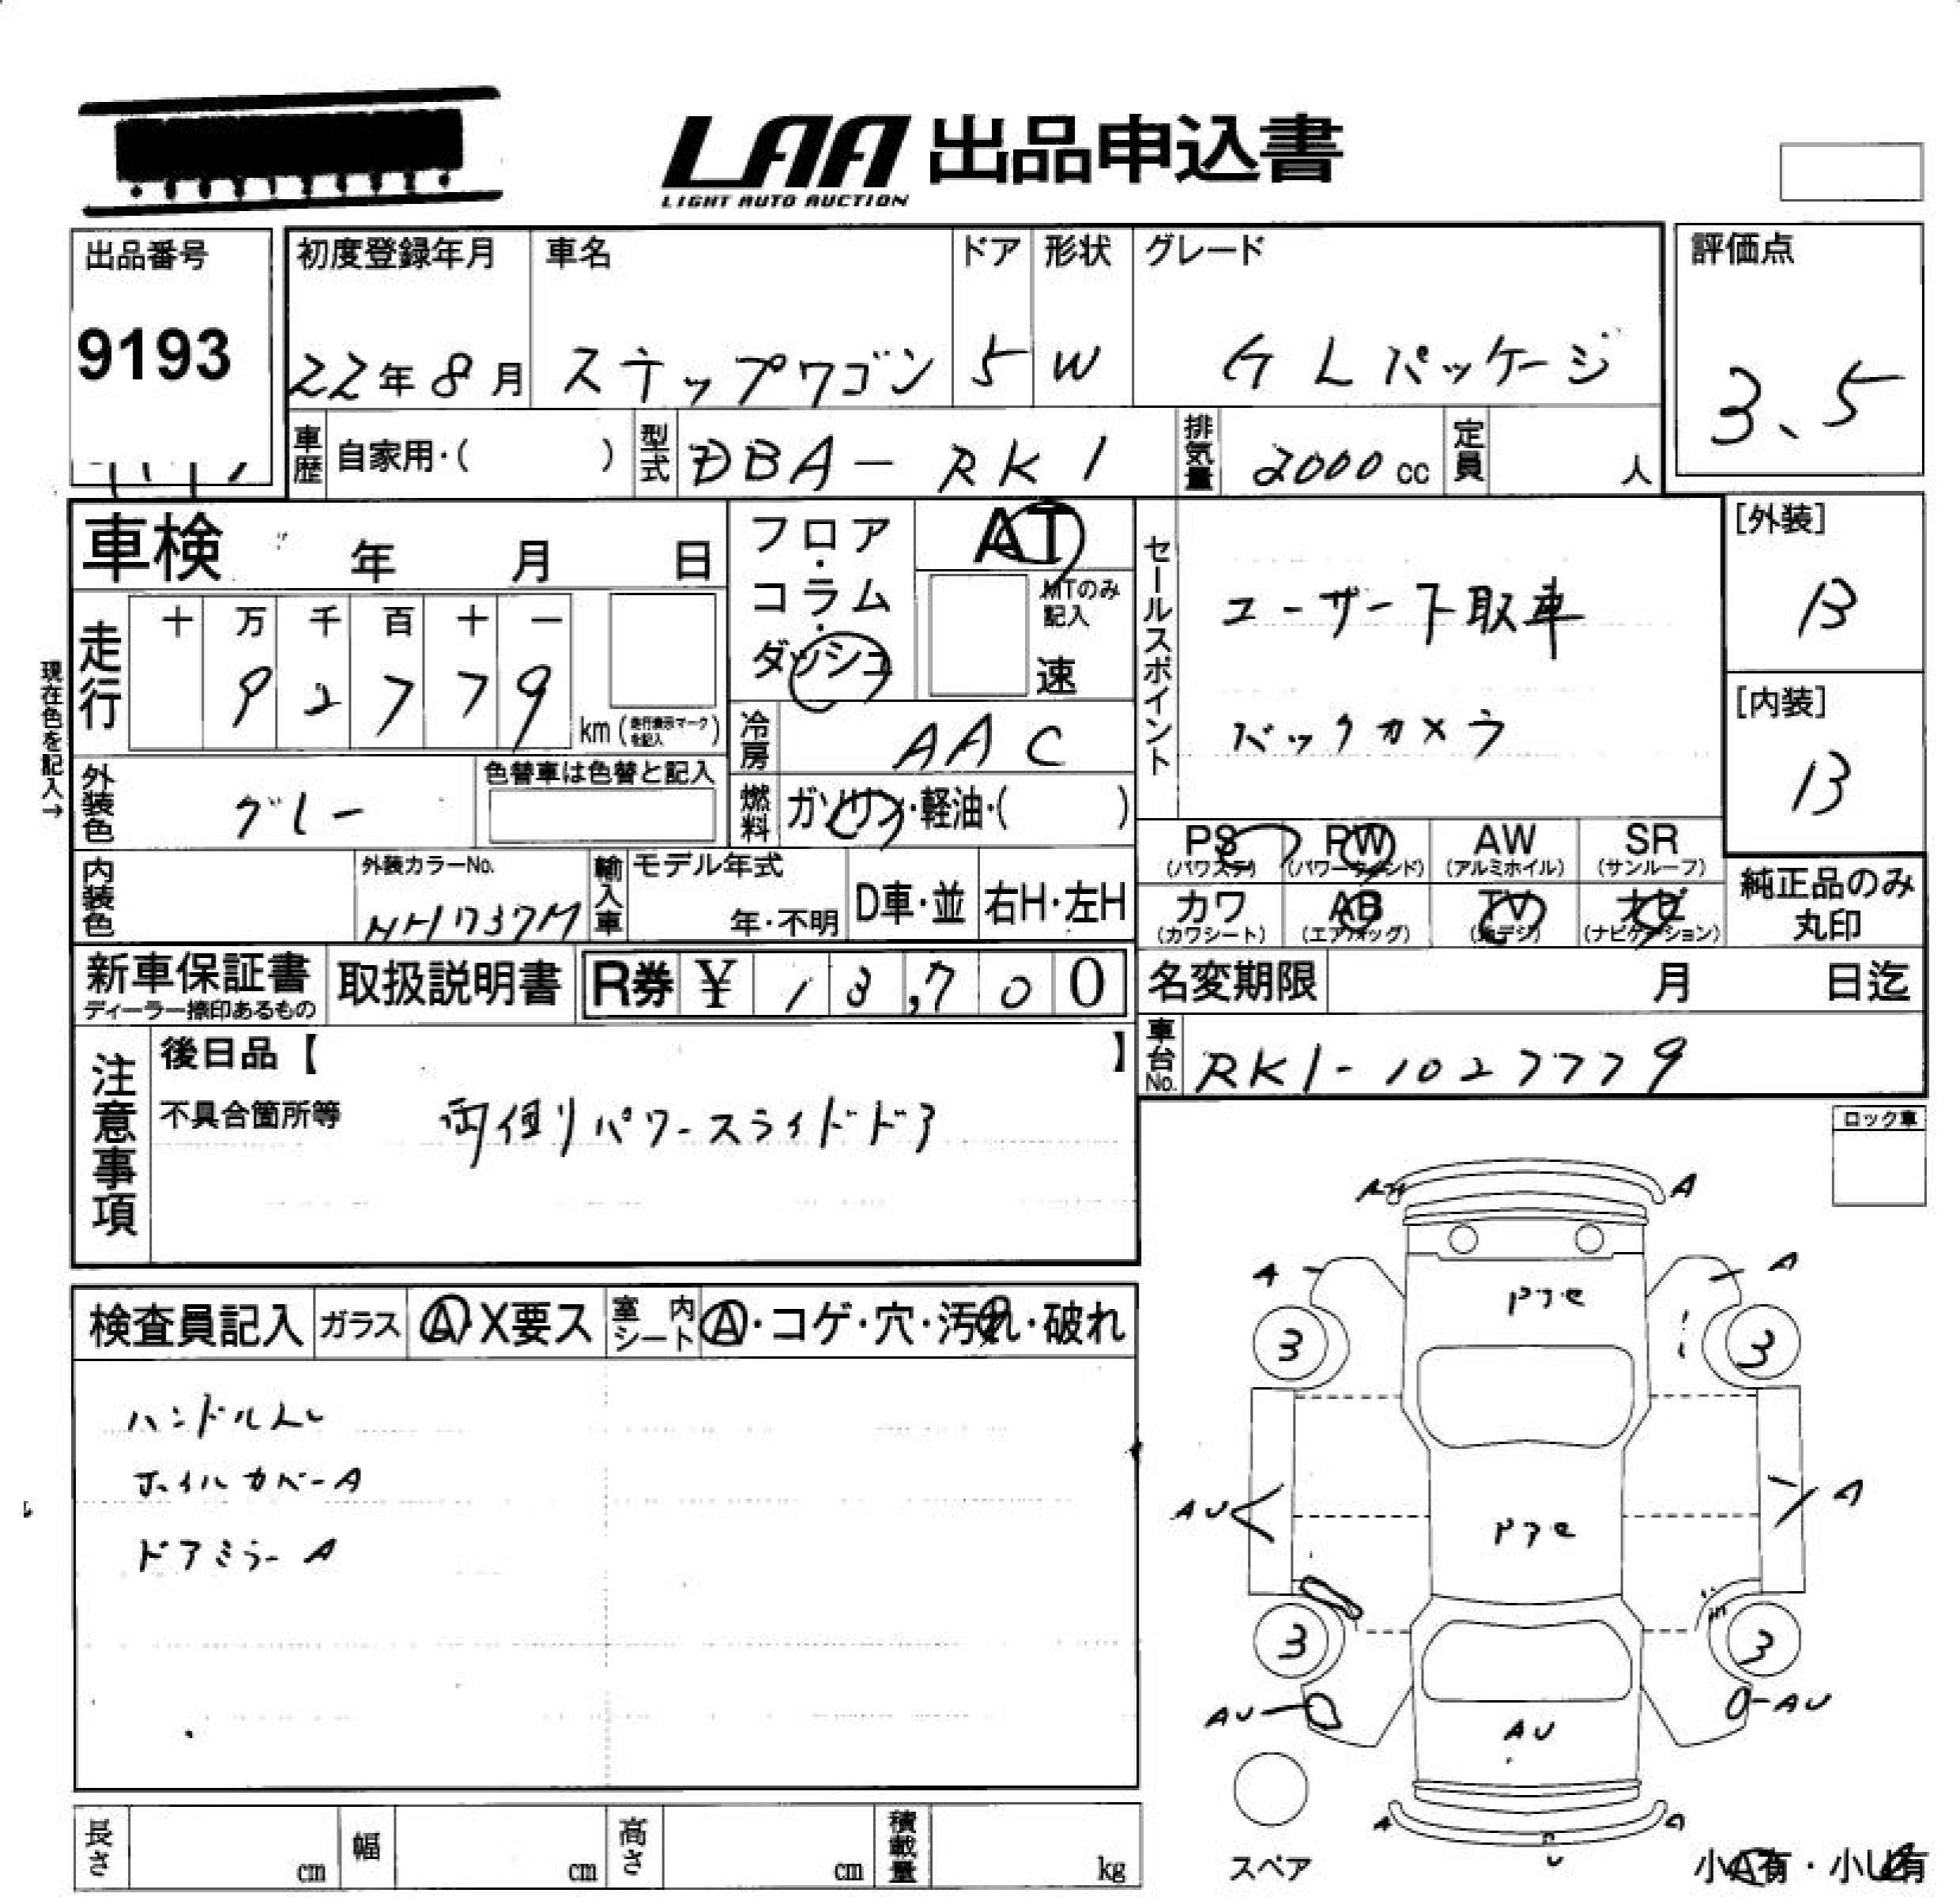 LAA 出品申込書
LIGHT AUTO AUCTION
出品番号
9193
初度登録年月
22年8月
車名
ステップワゴン
ドア
5
形状
W
グレード
G Lパッケージ
評価点
3.5
車歴 自家用・( )
型式 DBA-RK1
排気量 2000cc
定員 人
車検 年 月 日
フロア・コラム・ダッシュ
AT
MTのみ記入
速
セールスポイント
ユーザー下取車
バックカメラ
[外装]
B
[内装]
B
現在色を記入→
走行
十 万 千 百 十 一
9 2 7 7 9
km (走行表示マークを記入)
冷房 AAC
外装色 グレー
色替車は色替と記入
燃料 ガソリン・軽油・( )
PS (パワステ)
PW (パワーウインド)
AW (アルミホイル)
SR (サンルーフ)
カワ (カワシート)
AB (エアバッグ)
TV (地デジ)
ナビ (ナビゲーション)
純正品のみ丸印
内装色
外装カラーNo.
NH737M
輸入車
モデル年式
年・不明
D車・並
右H・左H
新車保証書
ディーラー捺印あるもの
取扱説明書
R券 ¥ 13,700
名変期限 月 日迄
車台No. RK1-1027779
注意事項
後日品【 】
不具合箇所等
両側パワースライドドア
ロック車
検査員記入
ガラス A X要ス
室内シート A・コゲ・穴・汚れ・破れ
ハンドルスレ
ホイルカバーA
ドアミラーA
A
A
A
3
3
AU
A
3
3
AU
AU
AU
A
A
U
スペア
小A有・小U有
長さ cm
幅 cm
高さ cm
積載量 kg